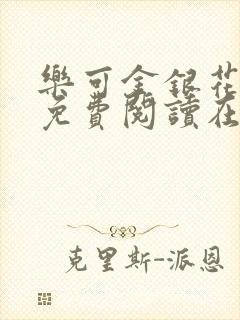 樂可金銀花
免費閱讀在
克里斯-派恩